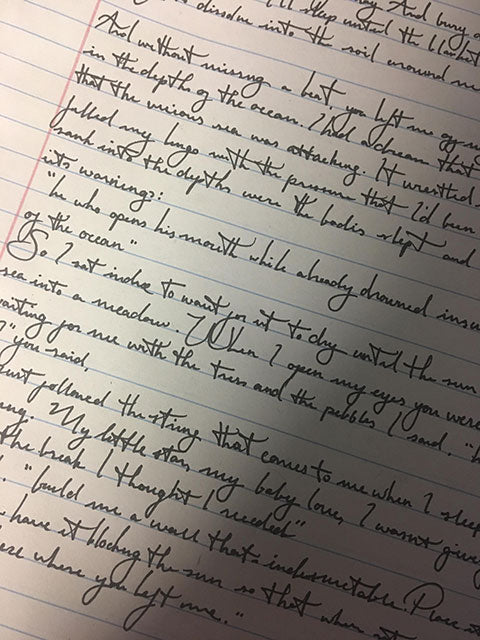 And bury
I'll sleep until the blanket
to dissolve into the soil around me
And without missing a beat you left me off
in the depths of the ocean. I had a dream that
that the unions sea was attacking. It wrestled
filled my lungs with the pressure that I'd been
sank into the depths were the bodies slept and
into warnings:
"he who opens his mouth while already drowned
of the ocean"
So I sat to wait for it to dry until the sun
sea into a meadow. When I open my eyes you were
waiting for me with the trees and the pebbles I said, "
" you said,
just followed the string that comes to me when I sleep
My little star, my baby love, I wasn't
the break I thought I needed"
"build me a wall that's indestructable. Place
have it blocking the sun so that when
where you left me."